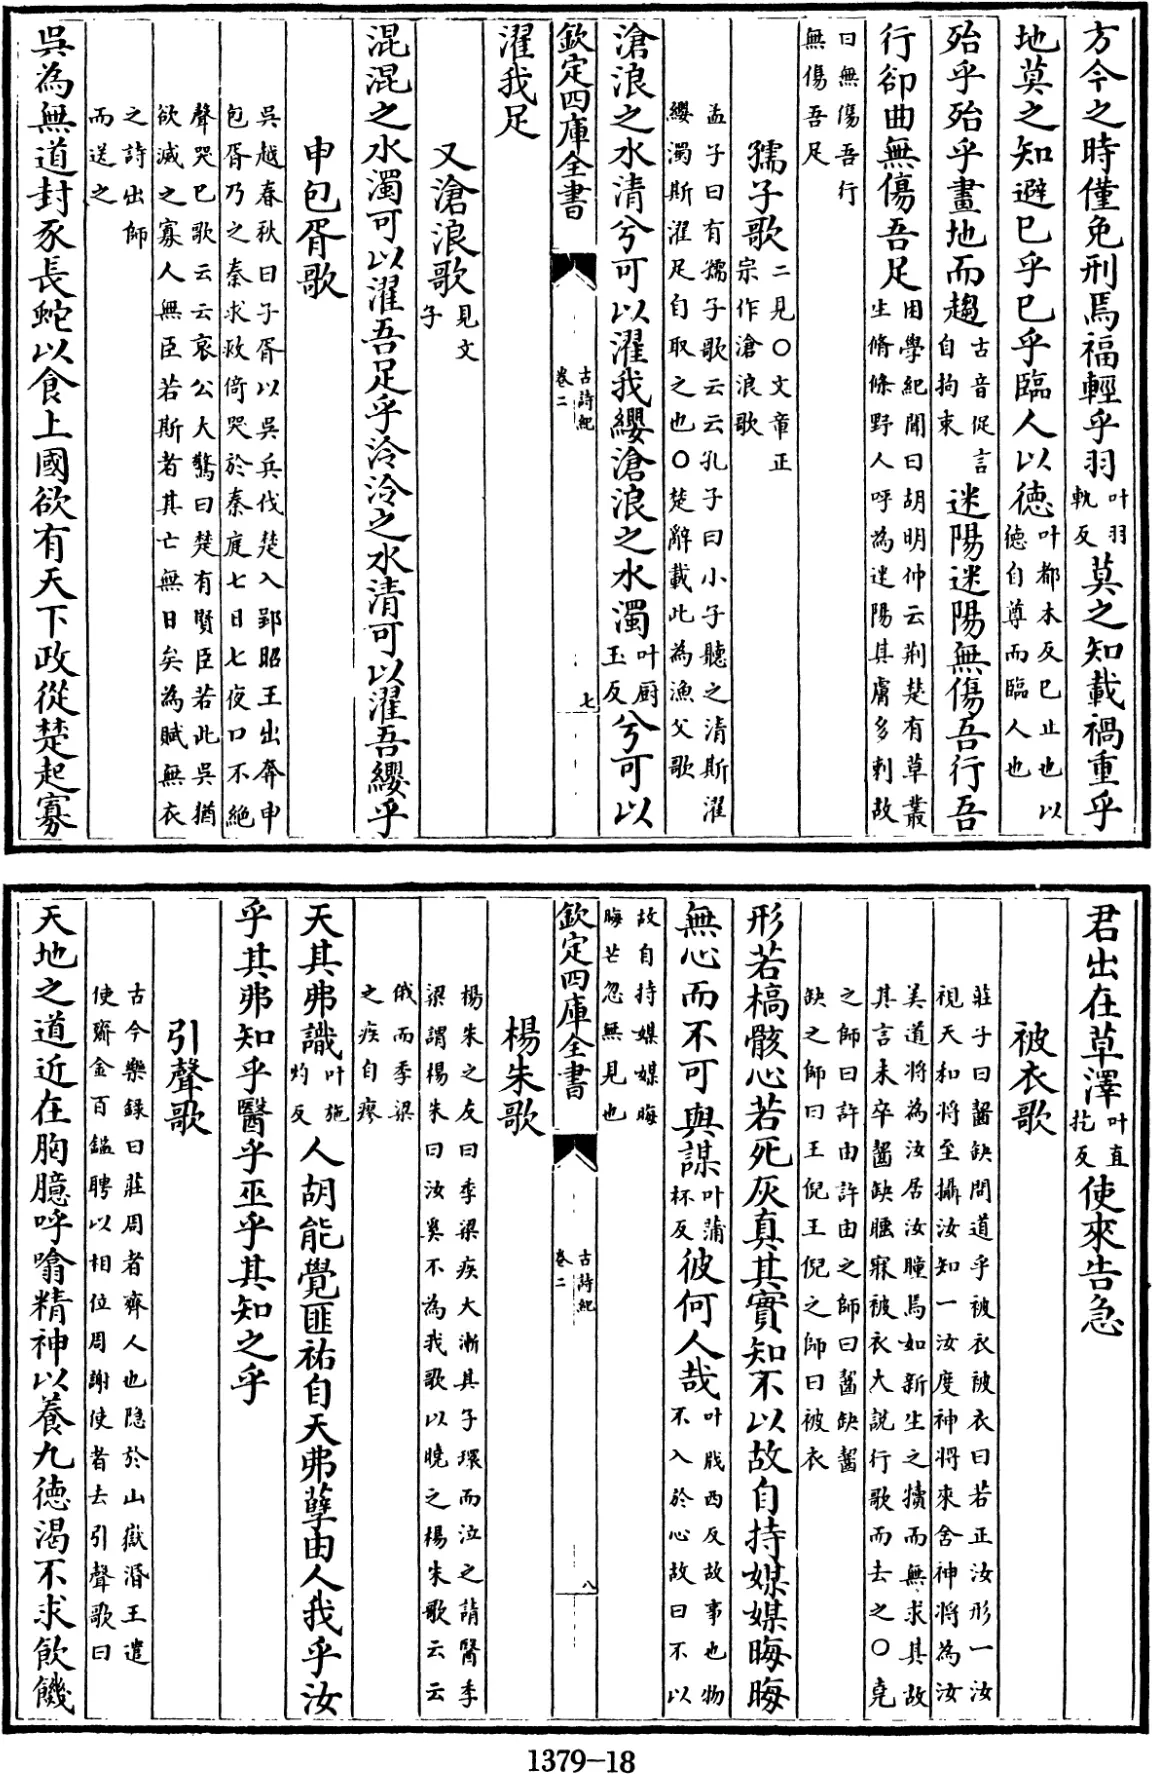 方今之時僅免刑焉福輕乎羽叶羽軌反莫之知載禍重乎
地莫之知避已乎已乎臨人以徳叶都木反已止也以德自尊而臨人也
殆乎殆乎畫地而趨古音促言自拘束迷陽迷陽無傷吾行吾
行郤曲無傷吾足困學紀聞曰胡明仲云荆楚有草叢生脩條野人呼為迷陽其膚多刺故
曰無傷吾行無傷吾足
孺子歌二見○文章正宗作滄浪歌
孟子曰有孺子歌云云孔子曰小子聽之清斯濯纓濁斯濯足自取之也○楚辭載此為漁父歌
滄浪之水清兮可以濯我纓滄浪之水濁叶厨玉反兮可以
欽定四庫全書 古詩紀 卷二 七
濯我足
又滄浪歌見文子
混混之水濁可以濯吾足乎泠泠之水清可以濯吾纓乎
申包胥歌
吳越春秋曰子胥以吳兵伐楚入郢昭王出奔申包胥乃之秦求救倚哭於秦庭七日七夜口不絶
聲哭已歌云云哀公大驚曰楚有賢臣若此吳猶欲滅之寡人無臣若斯者其亡無日矣為賦無衣
之詩出師而送之
吳為無道封豕長蛇以食上國欲有天下政從楚起寡
君出在草澤叶直挓反使來告急
被衣歌
莊子曰齧缺問道乎被衣被衣曰若正汝形一汝視天和將至攝汝知一汝度神將來舍神將為汝
美道將為汝居汝瞳焉如新生之犢而無求其故其言未卒齧缺睡寐被衣大説行歌而去之○堯
之師曰許由許由之師曰齧缺齧缺之師曰王倪王倪之師曰被衣
形若槁骸心若死灰真其實知不以故自持媒媒晦晦
無心而不可與謀叶蒲杯反彼何人哉叶戕西反故事也物不入於心故曰不以
故自持媒媒晦晦芒忽無見也
欽定四庫全書 古詩紀 卷二 八
楊朱歌
楊朱之友曰季梁疾大漸其子環而泣之請醫季梁謂楊朱曰汝奚不為我歌以曉之楊朱歌云云
俄而季梁之疾自瘳
天其弗識叶施灼反人胡能覺匪祐自天弗孽由人我乎汝
乎其弗知乎醫乎巫乎其知之乎
引聲歌
古今樂録曰莊周者齊人也隐於山嶽湣王遣使齎金百鎰聘以相位周謝使者去引聲歌曰
天地之道近在胸臆呼噏精神以養九德渴不求飲饑
1379-18